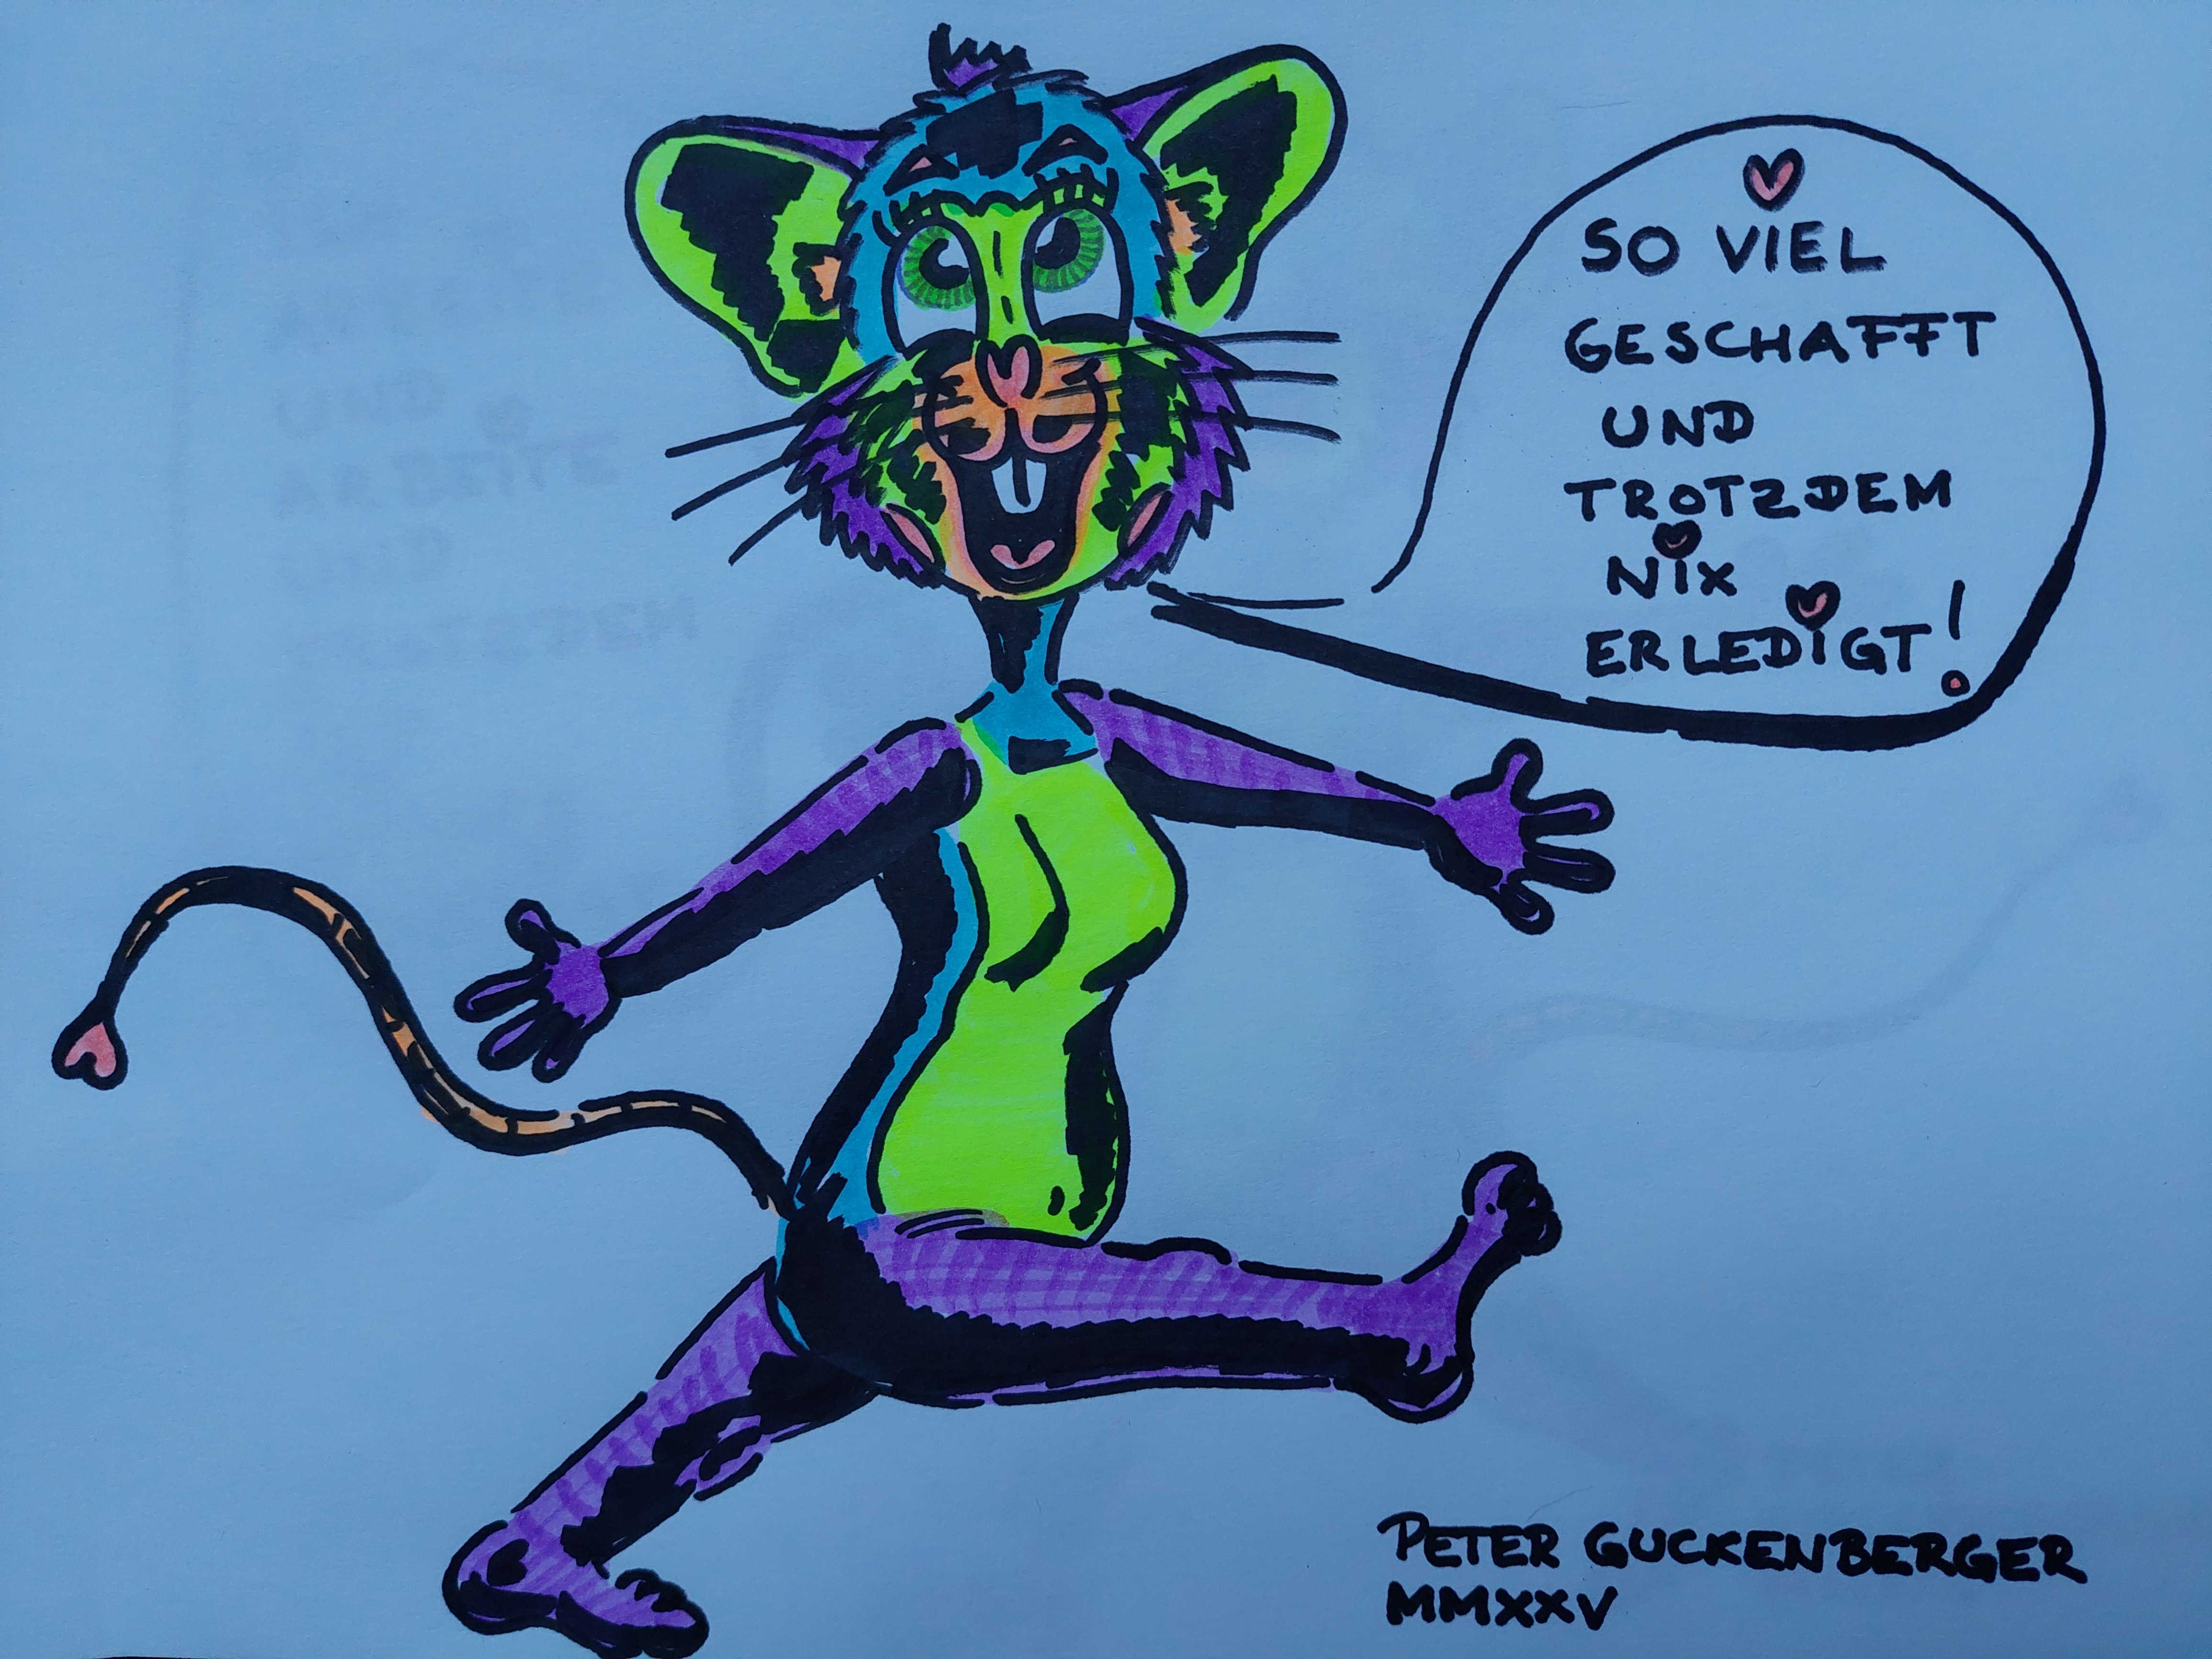 SO VIEL
GESCHAFFT
UND
TROTZDEM
NIX
ERLEDIGT!
PETER GUCKENBERGER
MMXXV